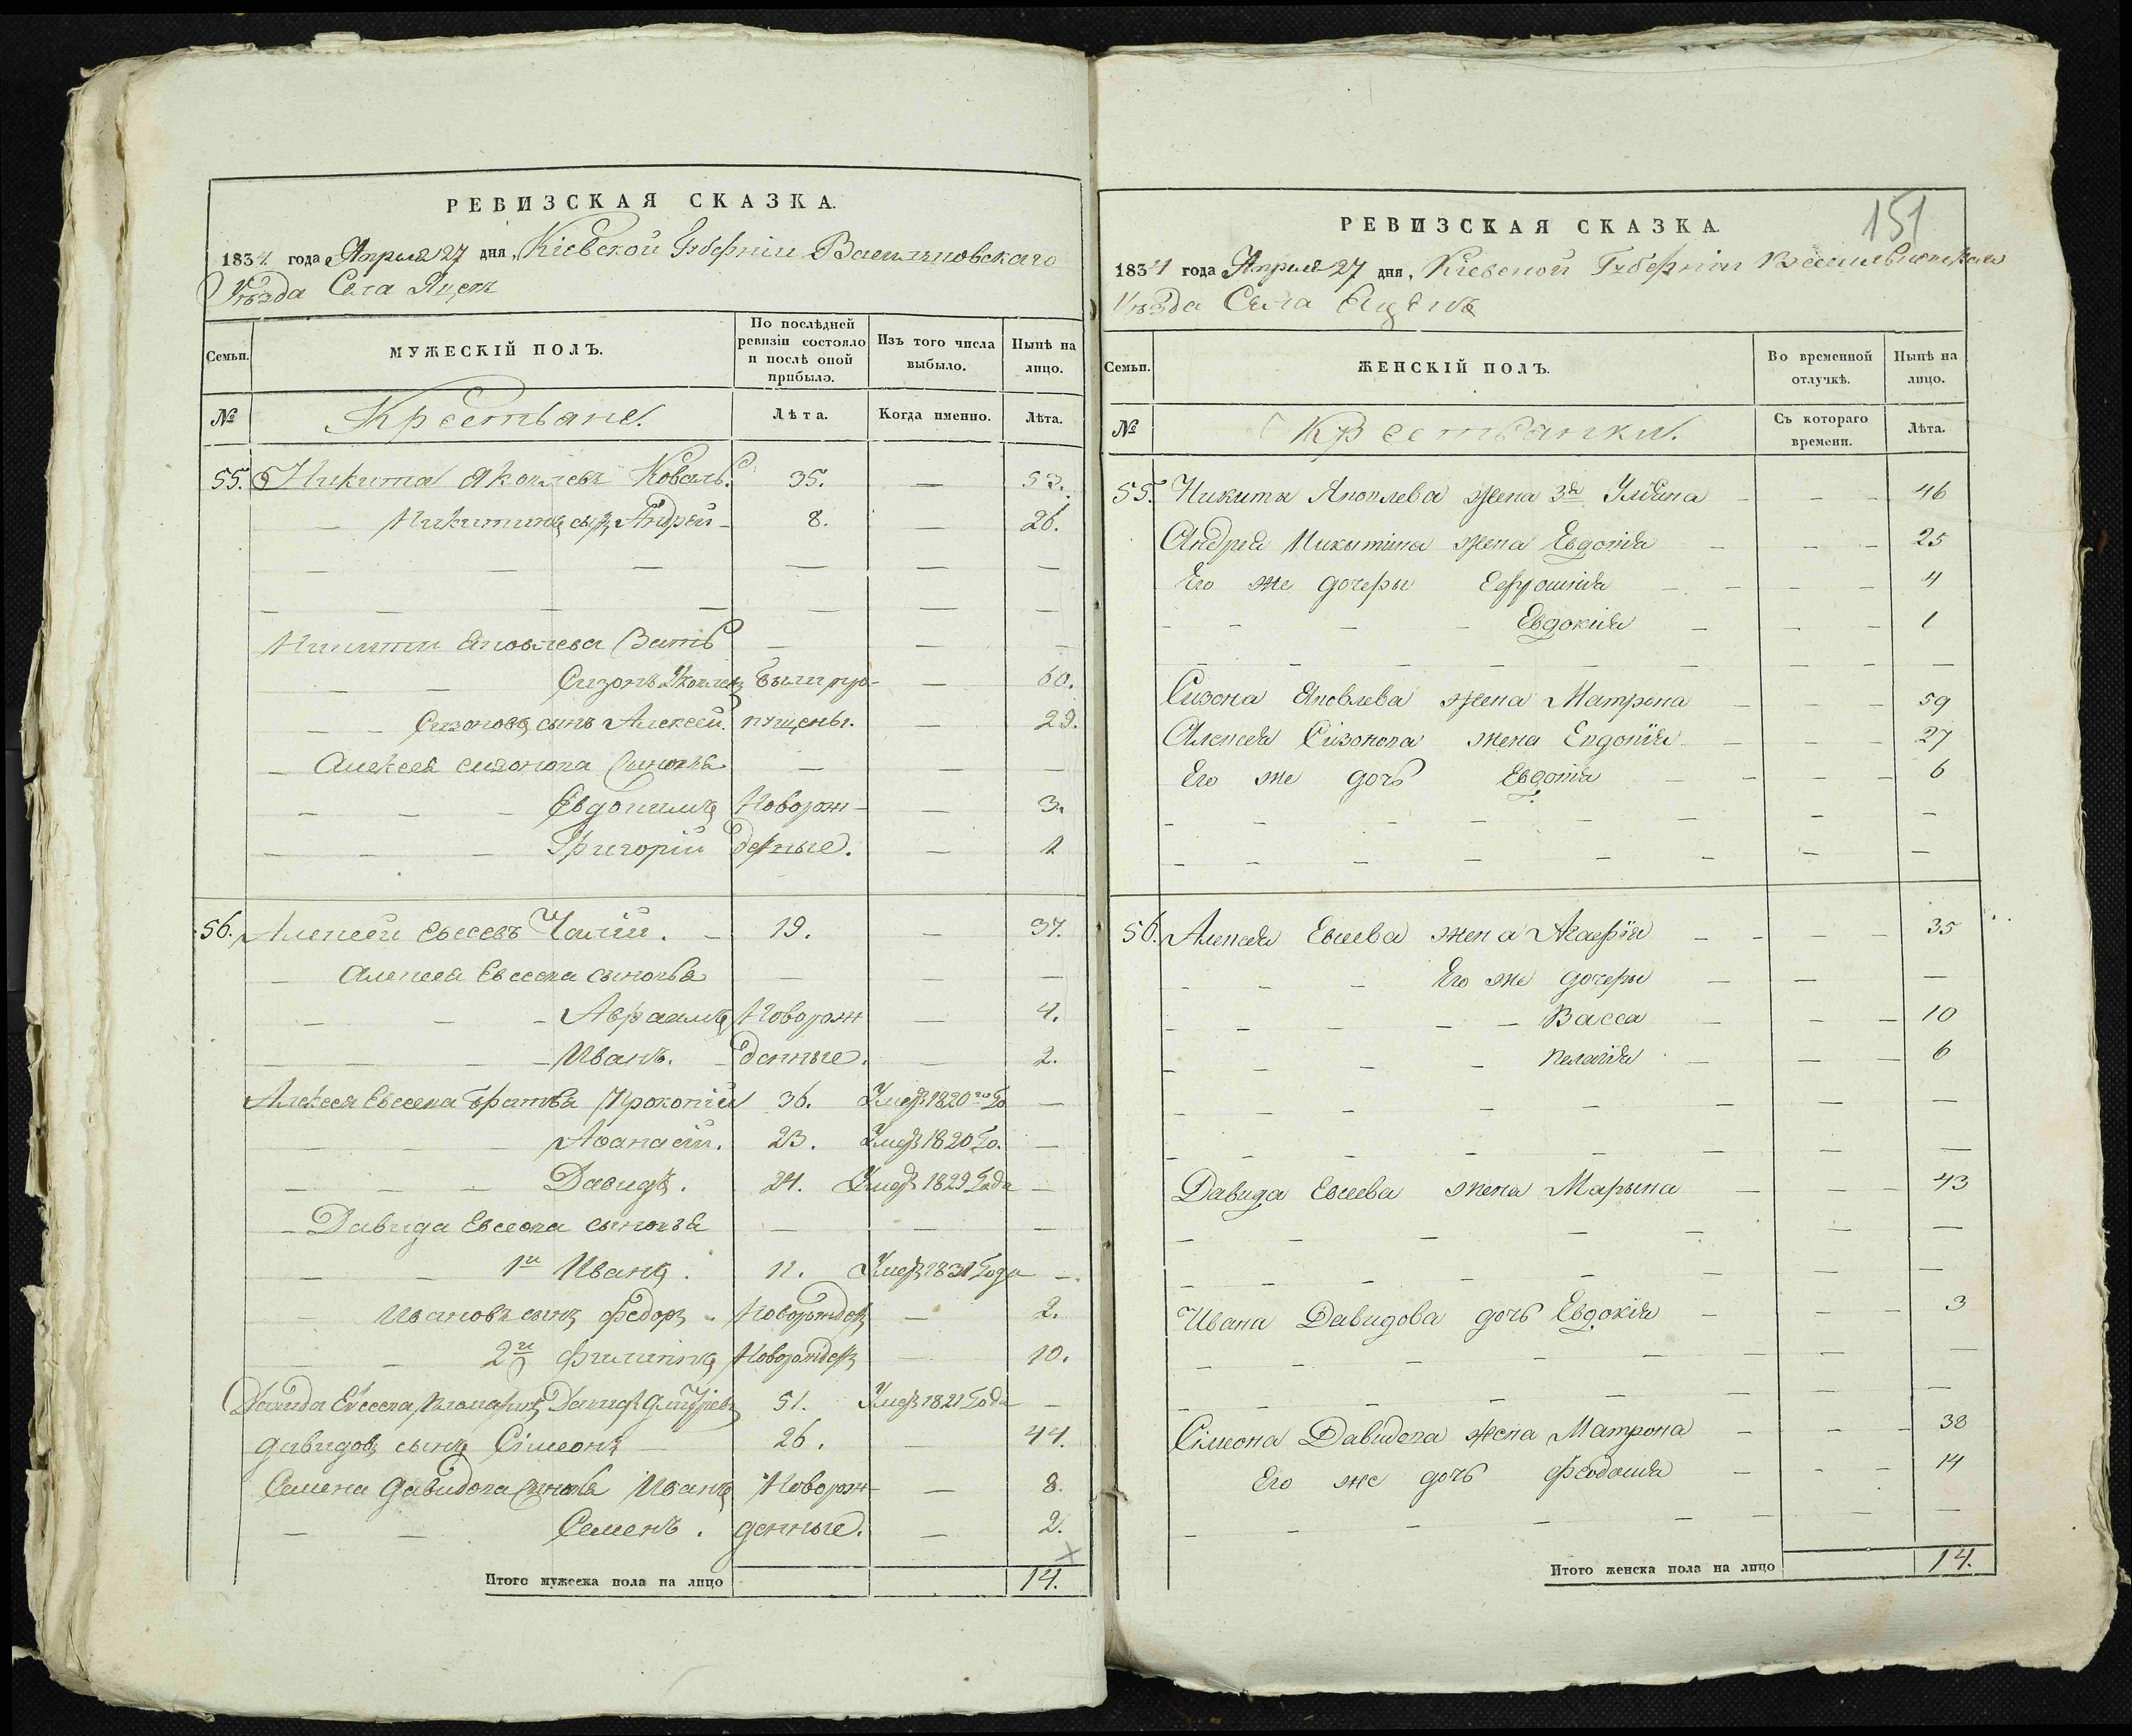 РЕВИЗСКАЯ СКАЗКА.
1834. года Апреля 27 дня, Кіевской Губерніи Васильковскаго
Уѣзда Села Яцекъ
Семьи. МУЖЕСКІЙ ПОЛЪ. По послѣдней ревизіи состояло и послѣ оной прибыло. Изъ того числа выбыло. Нынѣ на лицо.
№ Крестьяне. Лѣта. Когда именно. Лѣта.
55. Никита Яковлевъ Коваль. 35. — 53.
— Никитинъ сынъ Андрей — 8. — 26.
— — — — —
— — — — — —
Никиты Яковлева Братъ — — —
— — Сизонъ Яковлевъ были про- — 60.
— — Сизоновъ сынъ Алексей. пущены. — 29.
— Алексея Сизонова Сыновья — — —
— — — Евдокимъ Новорож- — 3.
— — — Григорій денные. — 1
56. Алексей Евсеевъ Чалій. — 19. — 37.
— Алексея Евсеева сыновья — — —
— — — Авраамъ Новорож — 4.
— — — Иванъ. — денные. — 2.
Алексея Евсеева братья Прокопій 36. Умеръ 1820го Го —
— — — Аѳанасій. 23. Умеръ 1820 Го. —
— — — Давидъ. 24. Умеръ 1829 Года —
— Давида Евсеева сыновья — — —
— — 1й Иванъ. 11. Умеръ 1831 Года —.
— Ивановъ сынъ Федоръ — Новорожден — 2.
— — 2й Филиппъ Новорожден — 10.
Давида Евсеева 51. Умеръ 1821 Года —
Давидовъ сынъ Сімеонъ — 26. — 44.
Семена Давидова Сыновья Иванъ Новорож- — 8.
— — Семенъ. денные. — 2.
Итого мужеска пола на лицо 14.
151
РЕВИЗСКАЯ СКАЗКА.
1834 года Апреля 27 дня, Кіевской Губерніи Васильковскаго
Уѣзда Села Яцекъ
Семьи. ЖЕНСКІЙ ПОЛЪ. Во временной отлучкѣ. Нынѣ на лицо.
№ Крестьянки. Съ котораго времени. Лѣта.
55. Никиты Яковлева жена 3я Улияна — — — 46
Андрея Никитина жена Евдокія — — — 25
Его же дочеры Ефросинія — — — — 4
— — — — Евдокія — — — 1
— — — — — — — — —
Сизона Яковлева жена Матрона — — — 59
Алексея Сизонова жена Евдокія — — — 27
Его же дочь Евдокія — — — — 6
— — — — — — — —
— — — — — — — —
56. Алексея Евсеева жена Агафія — — — — 35
— — — Его же дочеры — — —
— — — — — Васса — — — 10
— — — — Пелагія — — — 6
— — — — — — — — —
— — — — — — — — —
Давида Евсеева жена Марына — — — 43
— — — — — — —
— — — — — — — —
Ивана Давидова дочь Евдокія — — — 3
— — — — — — — —
— — — — — — — — —
Сімеона Давидова жена Матрона — — — 38
Его же дочь Феодосія — — — 14
— — — — — — — — —
Итого женска пола на лицо 14.